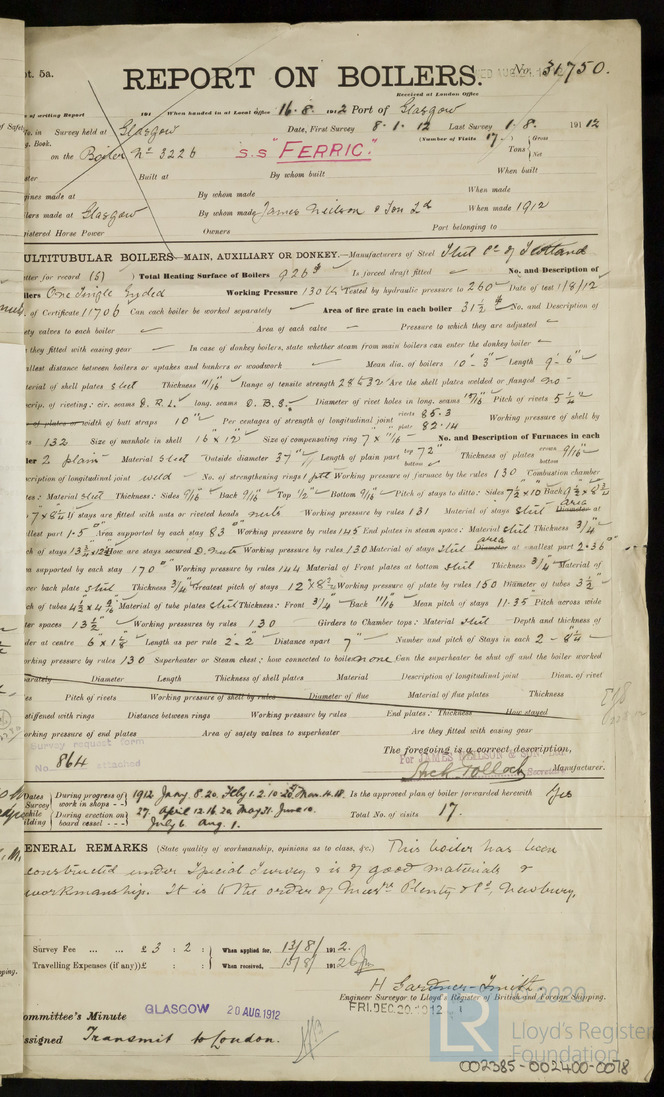 pt. 5a.
REPORT ON BOILERS.
No. 31750.
Received at London Office
of writing Report 191 When handed in at Local Office 16.8.1912 Port of Glasgow
No. in Survey held at Glasgow Date, First Survey 8.1.12 Last Survey 1.8.1912
g. Book. (Number of Visits 17. Gross
on the Boiler No 3226 S.S "FERRIC." Tons Net
Built at By whom built When built
gines made at By whom made When made
ilers made at Glasgow By whom made James Neilson & Son Ld When made 1912
gistered Horse Power Owners Port belonging to
ULTITUBULAR BOILERS—MAIN, AUXILIARY OR DONKEY.—Manufacturers of Steel Steel Co of Scotland
tter for record (S) Total Heating Surface of Boilers 926 Is forced draft fitted No. and Description of
ilers One Single Ended Working Pressure 130 Tested by hydraulic pressure to 260 Date of test 1/8/12
. of Certificate 11706 Can each boiler be worked separately Area of fire grate in each boiler 31½ No. and Description of
ety valves to each boiler Area of each valve Pressure to which they are adjusted
they fitted with easing gear In case of donkey boilers, state whether steam from main boilers can enter the donkey boiler
allest distance between boilers or uptakes and bunkers or woodwork Mean dia. of boilers 10'-3" Length 9'-6"
terial of shell plates Steel Thickness 11/16 Range of tensile strength 28 & 32 Are the shell plates welded or flanged no
scrip. of riveting: cir. seams D.R.L. long. seams D.B.S. Diameter of rivet holes in long. seams Pitch of rivets 5¼"
width of butt straps 10" Per centages of strength of longitudinal joint rivets 85.3 Working pressure of shell by
plate 82.14
132 Size of manhole in shell 16 x 12 Size of compensating ring 7 x 11/16 No. and Description of Furnaces in each
iler 2 plain Material Steel Outside diameter 37" Length of plain part top 72" bottom Thickness of plates crown bottom 9/16
scription of longitudinal joint weld No. of strengthening rings Working pressure of furnace by the rules 130 Combustion chamber
tes: Material Steel Thickness: Sides 9/16 Back 9/16 Top ½ Bottom 9/16 Pitch of stays to ditto: Sides 7½ x 10 Back
If stays are fitted with nuts or riveted heads nuts Working pressure by rules 131 Material of stays Steel Diameter area at
llest part 1.5 Area supported by each stay 83 Working pressure by rules 145 End plates in steam space: Material Steel Thickness ¾"
ch of stays How are stays secured D. nuts Working pressure by rules 130 Material of stays Steel Diameter area at smallest part 2.36
a supported by each stay 170 Working pressure by rules 144 Material of Front plates at bottom Steel Thickness ¾" Material of
wer back plate Steel Thickness ¾" Greatest pitch of stays Working pressure of plate by rules 150 Diameter of tubes 3½"
ch of tubes Material of tube plates Steel Thickness: Front ¾" Back 11/16 Mean pitch of stays 11.35 Pitch across wide
ter spaces 13½" Working pressures by rules 130 Girders to Chamber tops: Material Steel Depth and thickness of
der at centre Length as per rule 2'-2" Distance apart 7" Number and pitch of Stays in each
orking pressure by rules 130 Superheater or Steam chest; how connected to boiler none Can the superheater be shut off and the boiler worked
parately Diameter Length Thickness of shell plates Material Description of longitudinal joint Diam. of rivet
Pitch of rivets Working pressure of shell by rules Diameter of flue Material of flue plates Thickness
stiffened with rings Distance between rings Working pressure by rules End plates: Thickness How stayed
orking pressure of end plates Area of safety valves to superheater Are they fitted with easing gear
Survey request form
No. 864 attached
The foregoing is a correct description,
For JAMES NEILSON & SON
Manufacturer.
Dates of Survey while building During progress of work in shops - - 1912 Jany. 8.20. July 1.2.10.23 Mar. 4.18. Is the approved plan of boiler forwarded herewith Yes
During erection on board vessel - - - 27. April 12.16.20. May 21. June 10. Total No. of visits 17.
July 6. Aug. 1.
ENERAL REMARKS (State quality of workmanship, opinions as to class, &c.) This boiler has been
constructed under Special Survey & is of good materials &
workmanship. It is to the order of Messrs Plenty & Co, Newbury.
Survey Fee ... ... £ 3 : 2 : When applied for, 13/8/1912.
Travelling Expenses (if any) £ : : When received, 15/8/1912
H Gardner-Smith.
Engineer Surveyor to Lloyd's Register of British and Foreign Shipping.
ommittee's Minute GLASGOW 20 AUG. 1912 FRI. DEC. 20. 1912
ssigned Transmit to London.
© 2020
LR
Lloyd's Register
Foundation
002385-002400-0078